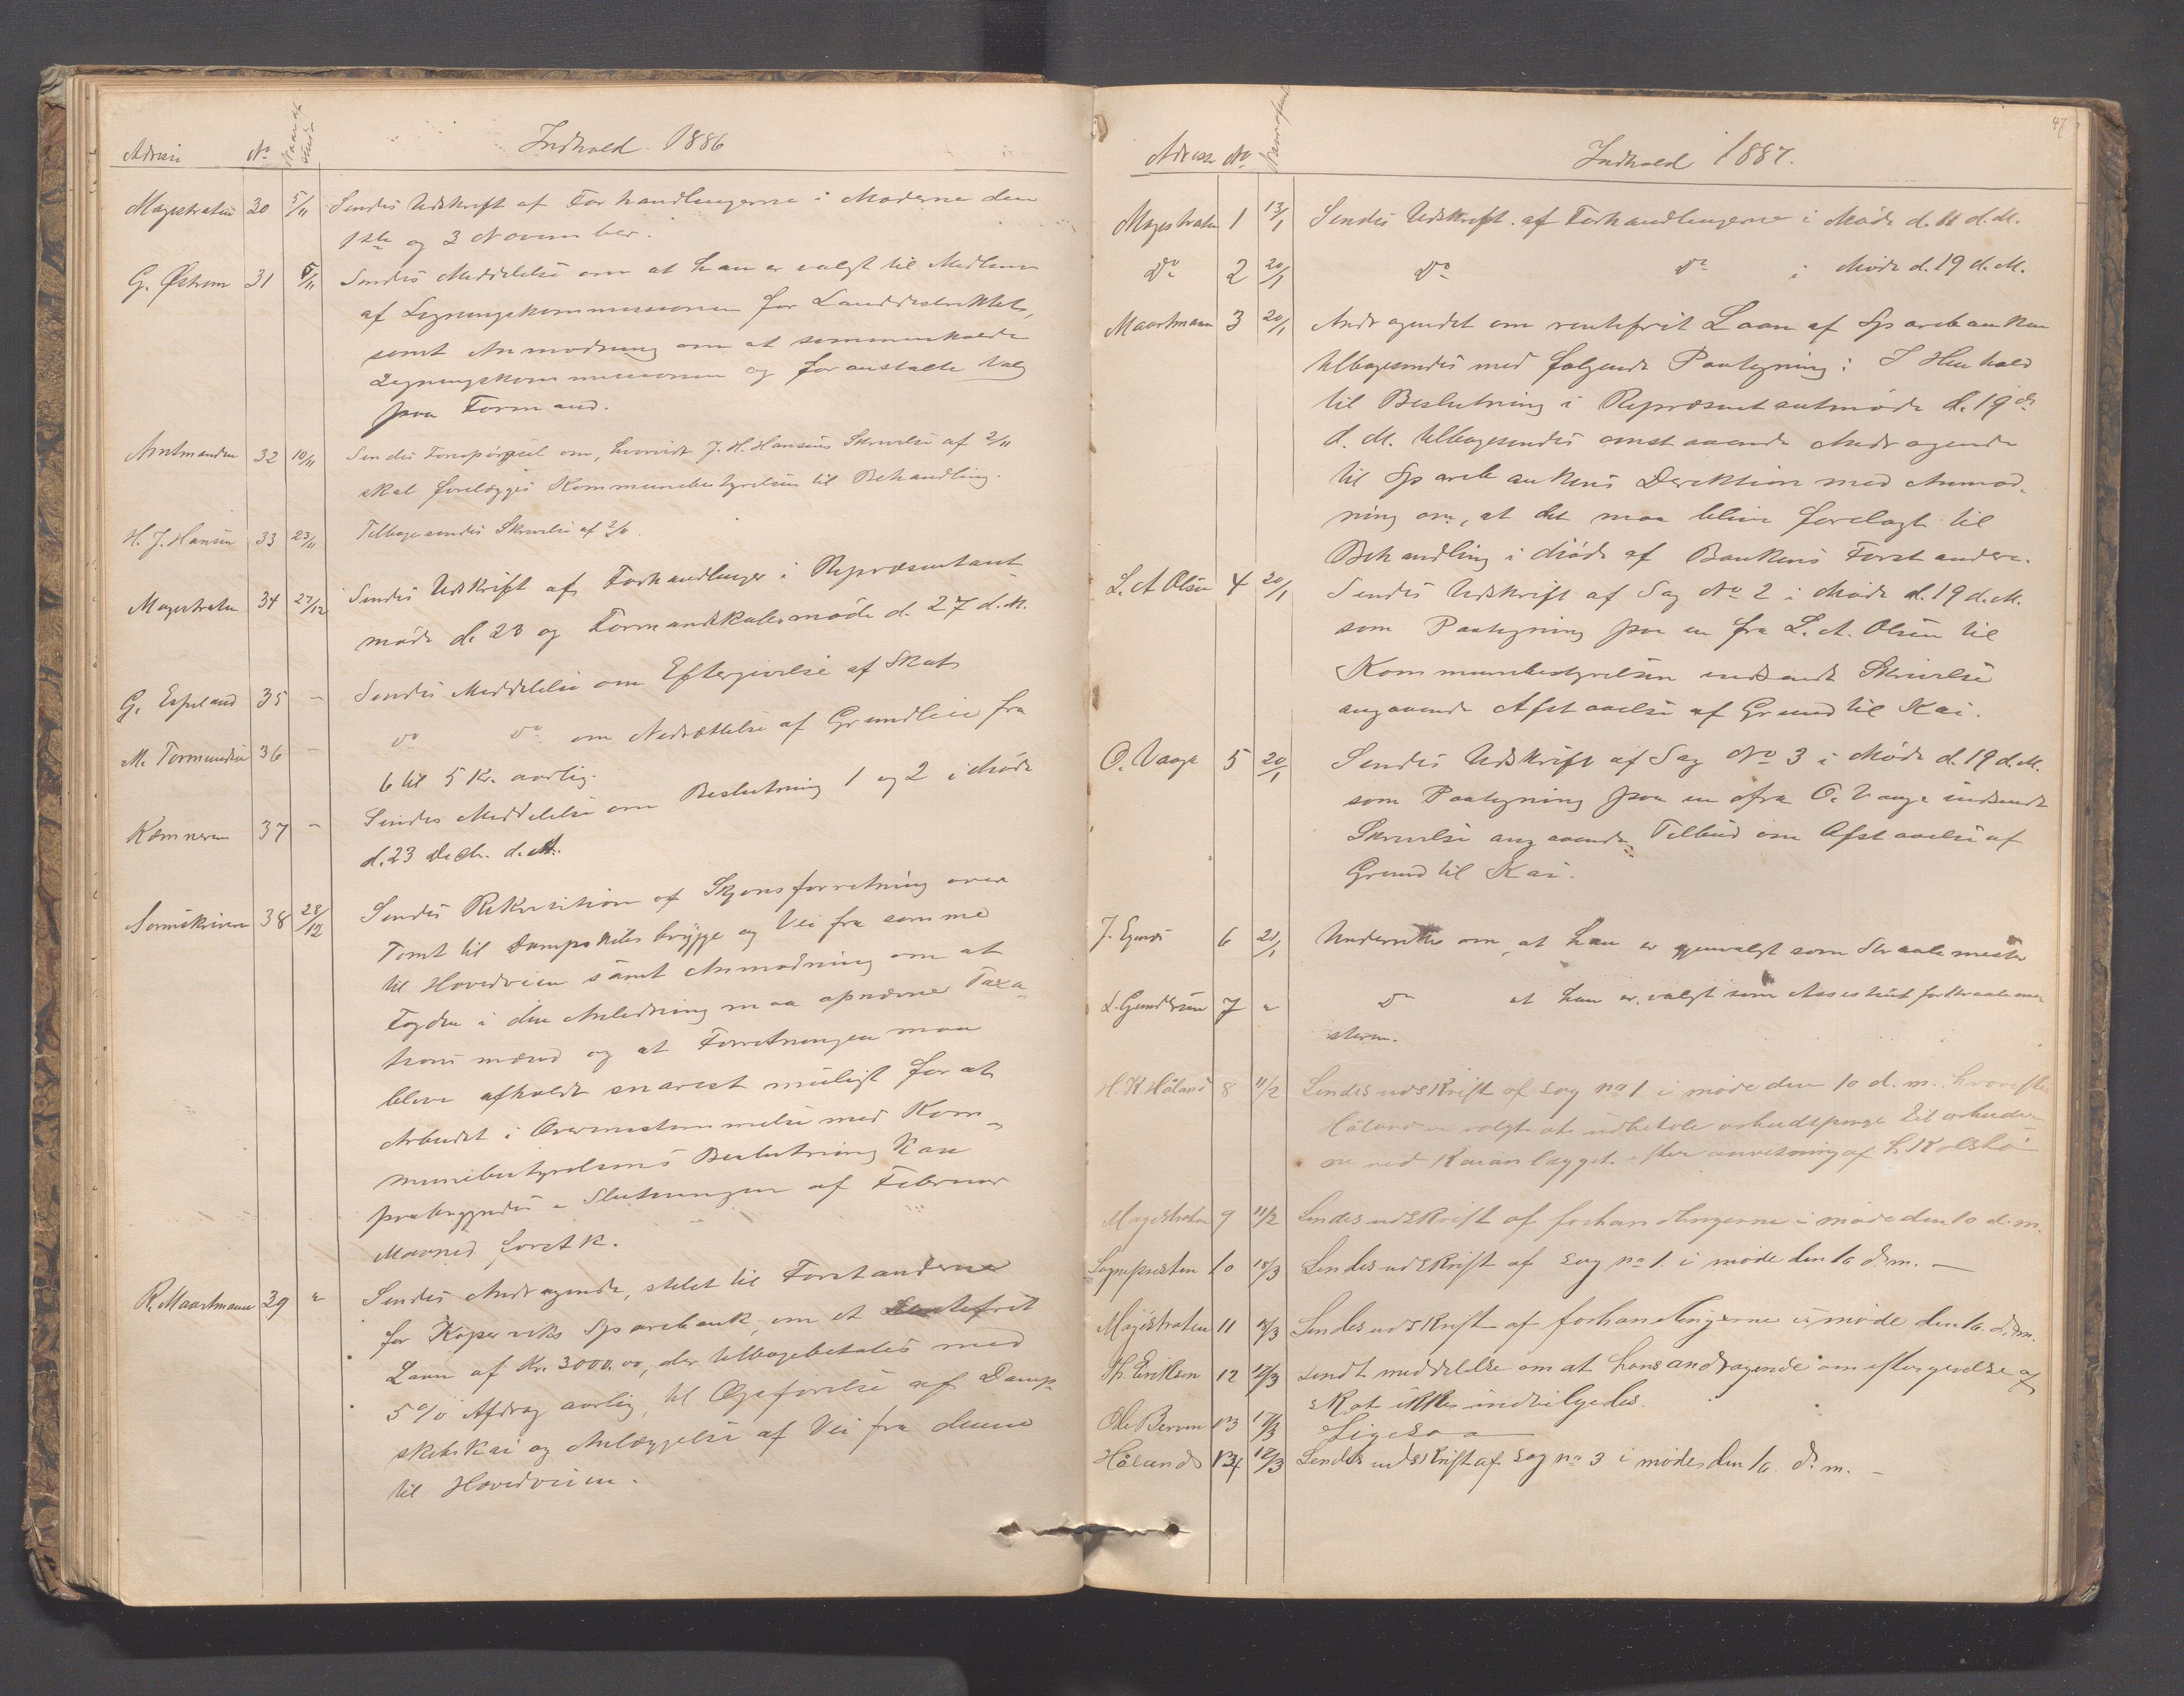 Adresse No Naar afsendt Indhold 1886
Magistraten 30 5/11 Sendes Udskrift af Forhandlingerne i Møderne den
1ste og 3 November.
G. Østrem 31 5/11 Sendes Meddelelse om at han er valgt til Medlem
af Ligningskommissionen for Landdistriktet,
samt Anmodning om at sammenkalde
Ligningskommissionen og foranstalte Valg
paa Formand.
Amtmanden 32 10/11 Sendes Forespørgsel om, hvorvidt J. H. Hansens Skrivelse af 2/11
skal forelægges Kommunebestyrelsen til Behandling.
H. J. Hansen 33 23/11 Tilbagesendes Skrivelse af 2/11.
Magistraten 34 27/12 Sendes Udskrift af Forhandlinger i Repræsentant
møde d. 23 og Formandskabsmøde d. 27 d. M.
G. Espeland 35 – Sendes Meddelelse om Eftergivelse af Skat
M. Tormundsen 36 – do do om Nedsættelse af Grundleie fra
6 til 5 Kr. aarlig.
Kæmneren 37 – Sendes Meddelelse om Beslutning 1 og 2 i Møde
d. 23 Decbr. d. A.
Sorenskriveren 38 28/12 Sendes Rekvisition af Skjønsforretning over
Tomt til Dampskibsbrygge og Vei fra samme
til Hovedveien samt Anmodning om at
Fogden i den Anledning maa opnævne Taxa-
tionsmænd og at Forretningen maa
blive afholdt snarest muligt for at
Arbeidet i Overensstemmelse med Kom-
munebestyrelsens Beslutning kan
paabegyndes i Slutningen af Februar
Maaned førstk.
R. Maartmann 39 " Sendes Andragende, stilet til Forstanderne
for Kopervik Sparebank, om et rentefrit
Laan af Kr. 3000.00, der tilbagebetales med
5 % Afdrag aarlig, til Opførelse af Damp-
skibskai og Anlæggelse af Vei fra denne
til Hovedveien.
47
Adresse No Naar afsendt Indhold 1887.
Magistraten 1 13/1 Sendes Udskrift af Forhandlingerne i Møde d. 11 d. M.
Do 2 20/1 Do Do i Møde d. 19 d. M.
Maartmann 3 20/1 Andragendet om rentefrit Laan af Sparebanken
tilbagesendes med følgende Paategning: I Henhold
til Beslutning i Repræsentantmøde d. 19de
d. M. tilbagesendes omstaaende Andragende
til Sparebankens Direktion med Anmod-
ning om, at det maa blive forelagt til
Behandling i Møde af Bankens Forstandere.
L. A. Olsen 4 20/1 Sendes Udskrift af Sag No 2 i Møde d. 19 d. M.
som Paategning paa en fra L. A. Olsen til
Kommunebestyrelsen indsendt Skrivelse
angaaende Afstaaelse af Grund til Kai.
O. Vaage 5 20/1 Sendes Udskrift af Sag No 3 i Møde d. 19 d. M.
som Paategning paa en fra O. Vaage indsendt
Skrivelse angaaende Tilbud om Afstaaelse af
Grund til Kai.
J. Egenæs 6 21/1 Underrettes om, at han er gjenvalgt som Straalemester
L. Gundersen 7 " Do at han er valgt som Assistent for Straaleme-
steren.
H. K. Håland 8 11/2 Sendes udskrift af sag no 1 i møde den 10 d. m. hvorefter
Håland er valgt at udbetale arbeidspenge til arbeider-
ne ved Kaianlægget efter anvisning af
Magistraten 9 11/2 Sendes udskrift af forhandlingerne i møde den 10 d. m.
Sognepresten 10 18/3 Sendes udskrift af sag no 1 i møde den 16 d. m. –
Magistraten 11 18/3 Sendes udskrift af forhandlingerne i møde den 16. d. m.
Th. Eriksen 12 17/3 sendt meddelelse om at hans andragende om eftergivelse af
skat ikke indvilgedes.
Ole Berven 13 17/3 Ligesaa
Håland 14 18/3 Sendes udskrift af sag no 3 i møde den 16 d. m. –